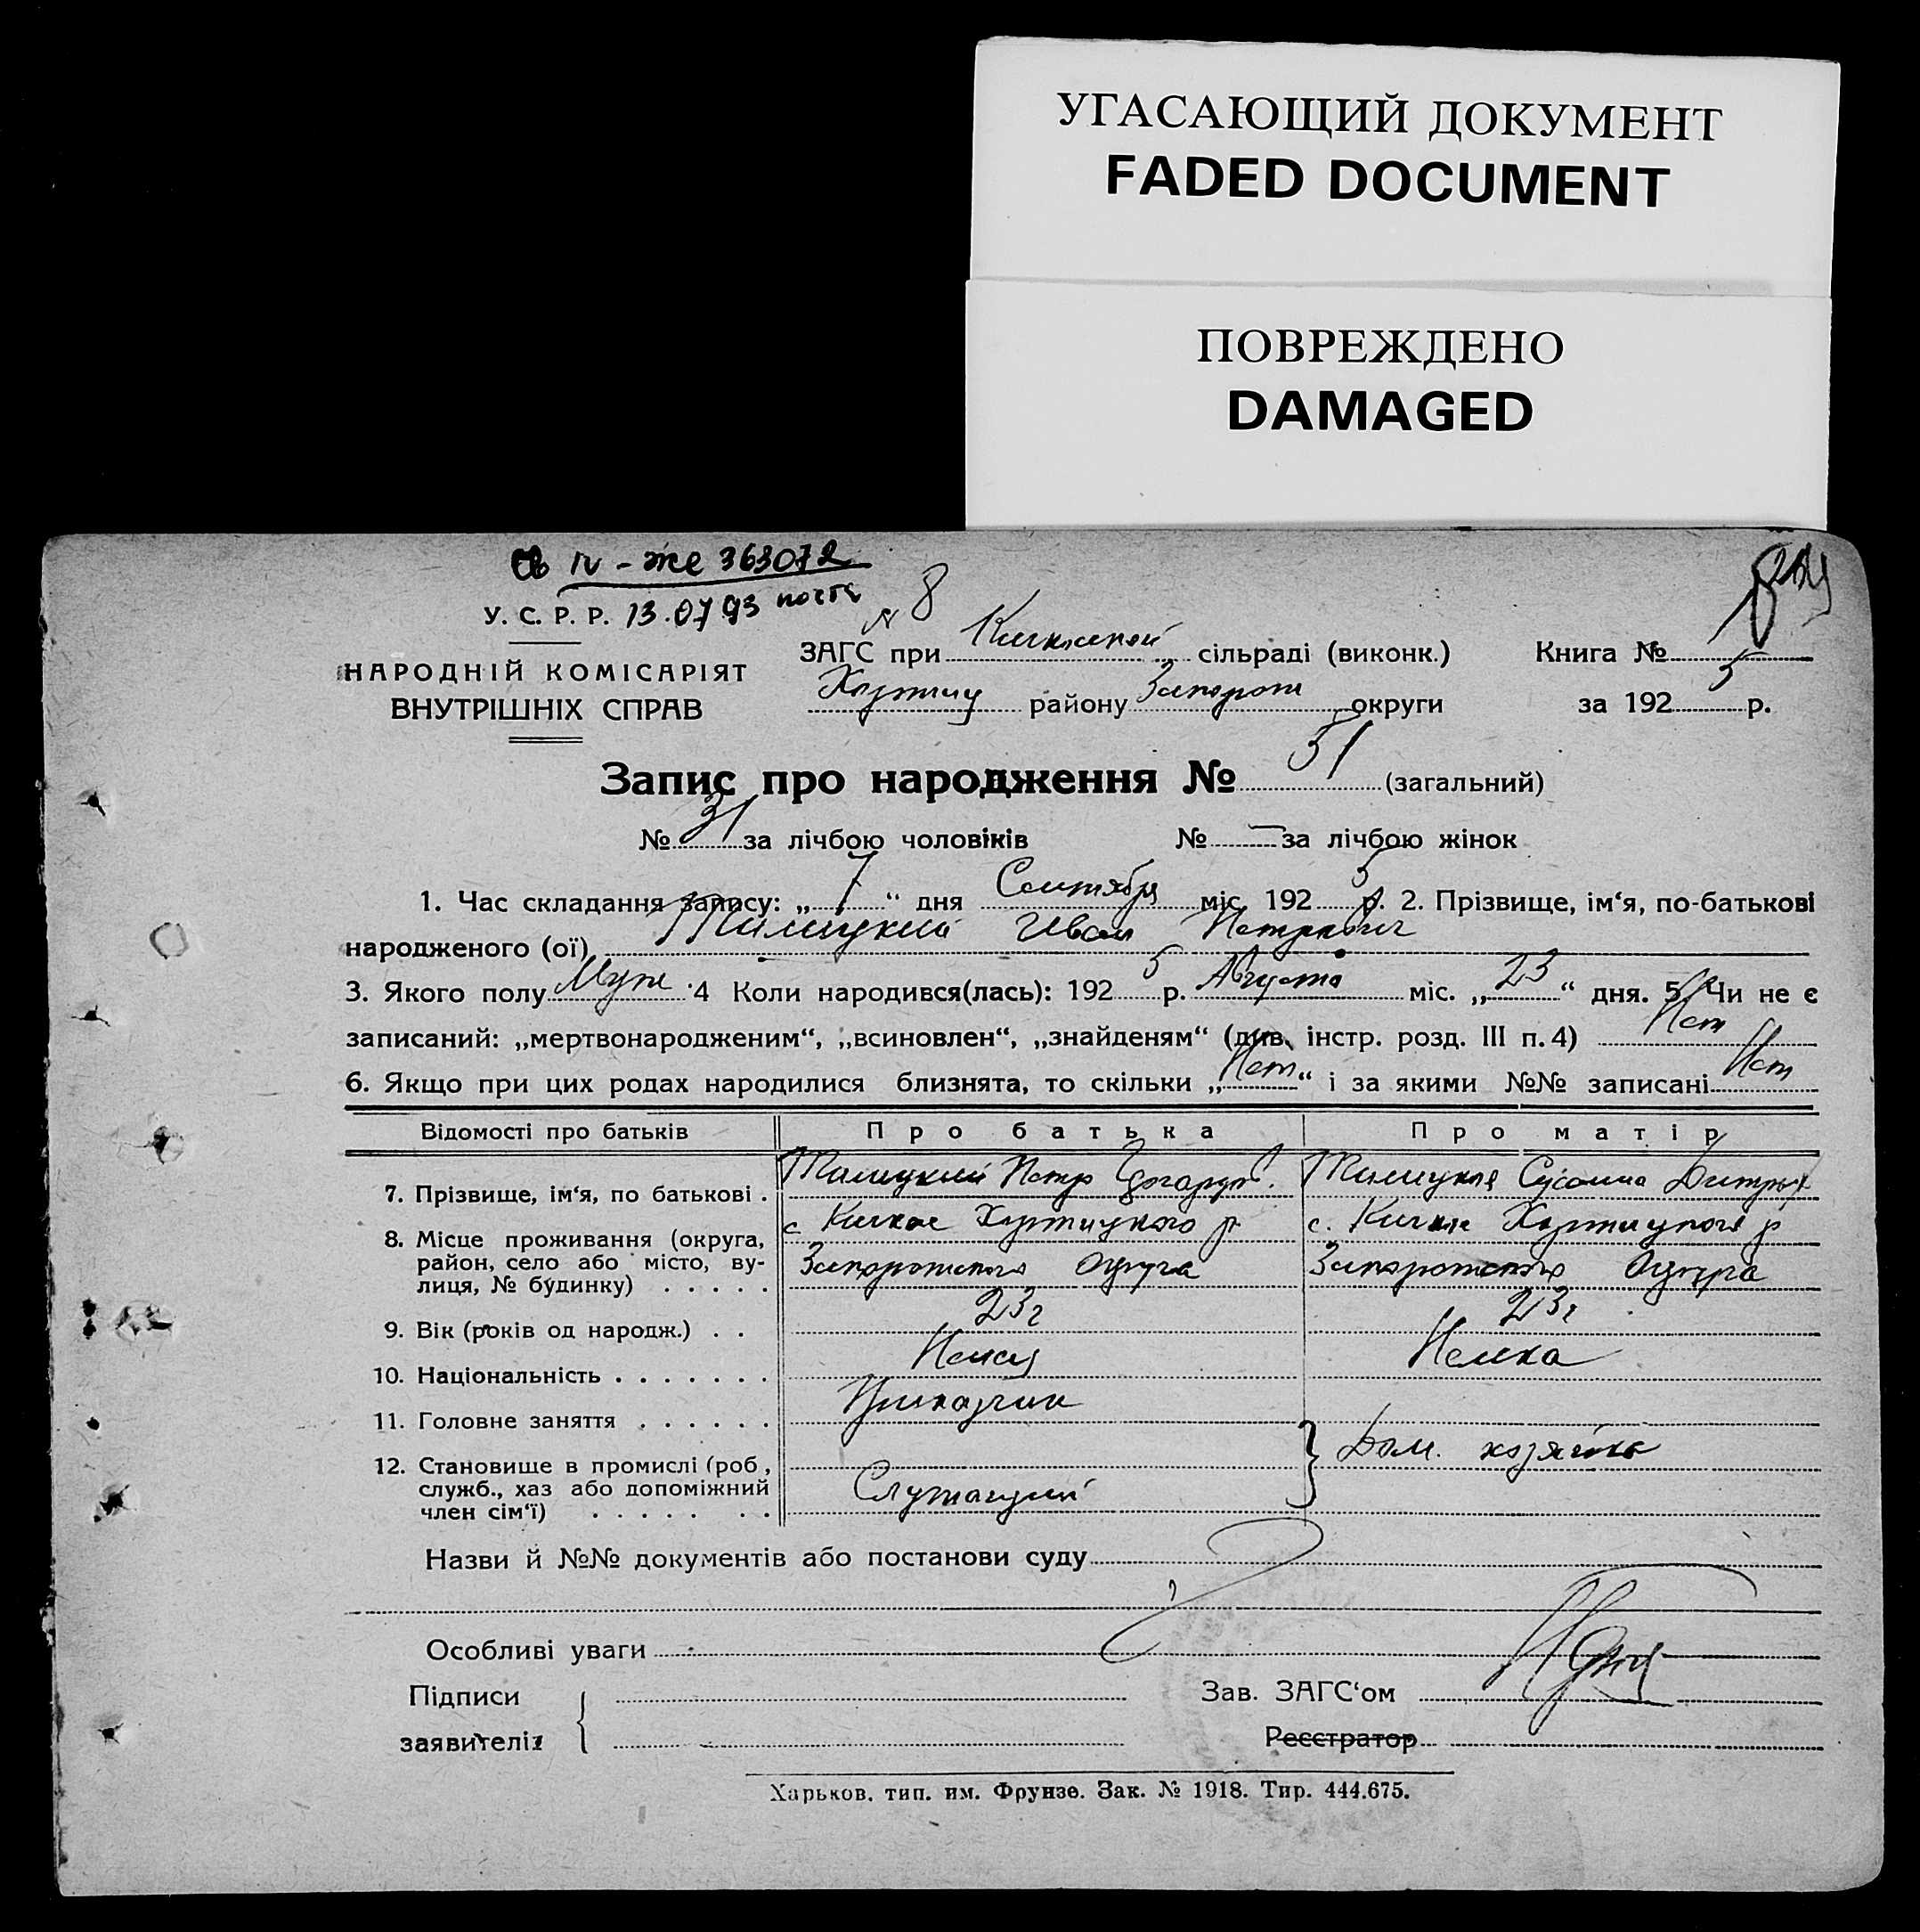 УГАСАЮЩИЙ ДОКУМЕНТ
FADED DOCUMENT
ПОВРЕЖДЕНО
DAMAGED
св IV - же 363072
У. С. Р. Р. 13.07 93
№ 8
НАРОДНІЙ КОМІСАРІЯТ
ВНУТРІШНІХ СПРАВ
ЗАГС при Кичкаской сільраді (виконк.) Книга №
Хортиц району Запорож округи за 1925 р.
Запис про народження № 51 (загальний)
№ 31 за лічбою чоловіків № — за лічбою жінок
1. Час складання запису: „7“ дня Сентября міс. 1925 р. 2. Прізвище, ім‘я, по-батькові
народженого (ої) Тилицкий Иван Петрович
3. Якого полу Муж 4 Коли народився(лась): 1925 р. Августа міс. „23“ дня. 5. Чи не є
записаний: „мертвонародженим“, „всиновлен“, „знайденям“ (див. інстр. розд. III п. 4) Нет
6. Якщо при цих родах народилися близнята, то скільки „Нет“ і за якими №№ записані Нет
Відомості про батьків Про батька Про матір
7. Прізвище, ім‘я, по батькові . Тилицкий Петр Тилицкая Сусанна
8. Місце проживання (округа, с Кичкас Хортицкого р с. Кичкас Хортицкого р
район, село або місто, ву- Запорожского Округа Запорожского Округа
лиця, № будинку) . . . . .
9. Вік (років од народж.) . . 23г 23г
10. Національність . . . . . . . Немец Немка
11. Головне заняття . . . . . . Приказчик
12. Становище в промислі (роб, Дом. хозяйка
служб., хаз або допоміжний Служащий
член сім‘ї) . . . . . . .
Назви й №№ документів або постанови суду
Особливі уваги
Підписи Зав. ЗАГС‘ом
заявителів Реєстратор
Харьков. тип. им. Фрунзе. Зак. № 1918. Тир. 444.675.